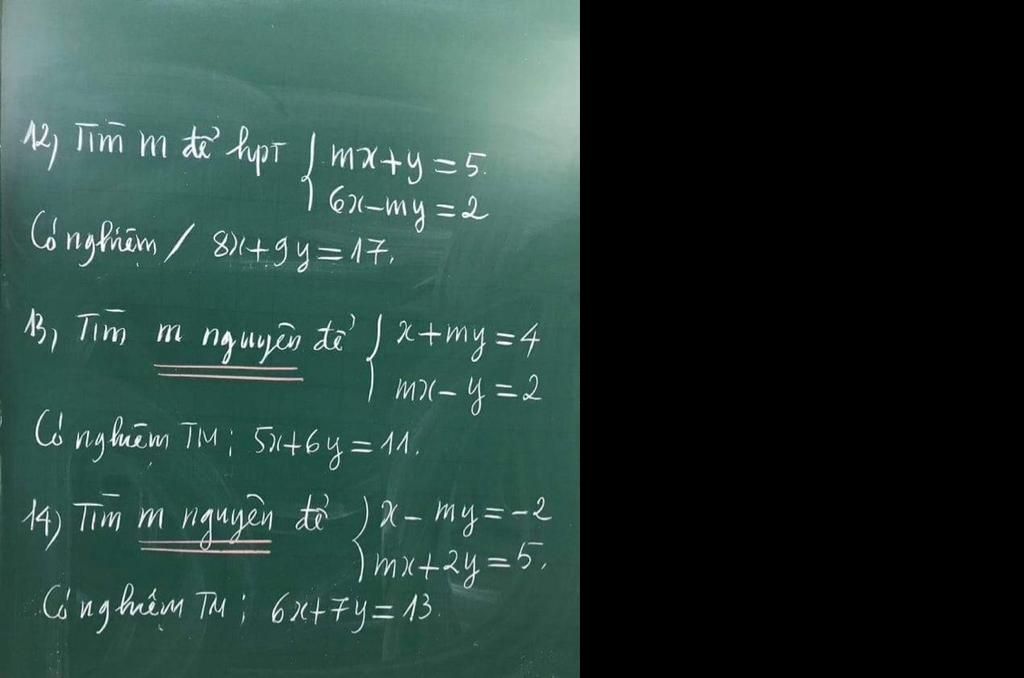 12) Tìm m để hpt { mx+y=5.
6x-my=2
Có nghiệm / 8x+9y=17.
13, Tìm m nguyên để { x+my=4
mx-y=2
Có nghiệm TM: 5x+6y=11.
14) Tìm m nguyên để { x-my=-2
mx+2y=5.
Có nghiệm TM: 6x+7y=13.